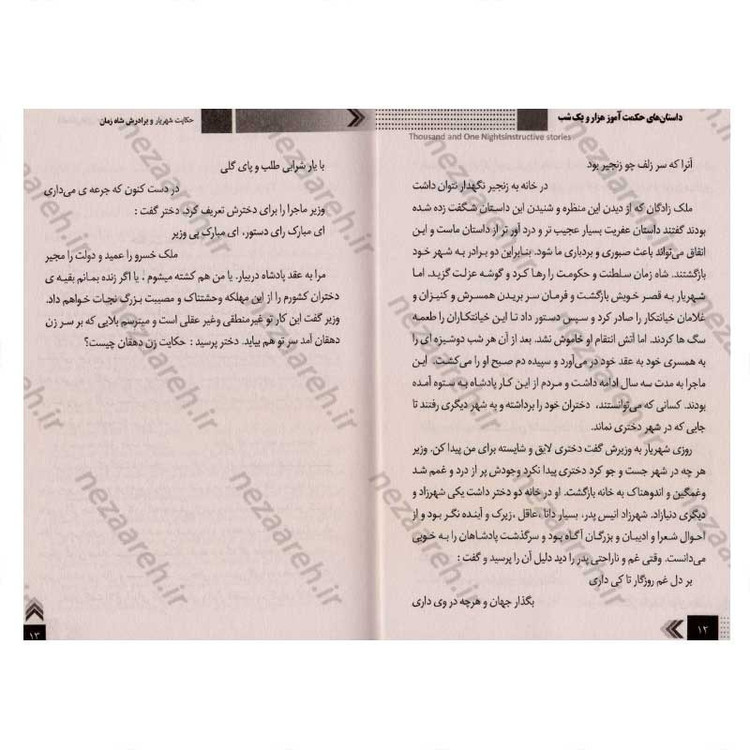 داستان‌های حکمت آموز هزار و یک شب
Thousand and One Nightsinstructive stories
آنرا که سر زلف چو زنجیر بود
در خانه به زنجیر نگهدار نتوان داشت
ملک زادگان که از دیدن این منظره و شنیدن این داستان شگفت زده شده
بودند گفتند داستان عفریت بسیار عجیب تر و درد آور تر از داستان ماست و این
اتفاق می‌تواند باعث صبوری و بردباری ما شود. بنابراین دو برادر به شهر خود
بازگشتند. شاه زمان سلطنت و حکومت را رها کرد و گوشه عزلت گزید. اما
شهریار به قصر خویش بازگشت و فرمان سر بریدن همسرش و کنیزان و
غلامان خیانتکار را صادر کرد و سپس دستور داد تا این خیانتکاران را طعمه
سگ ها کردند. اما آتش انتقام او خاموش نشد. بعد از آن هر شب دوشیزه ای را
به همسری خود به عقد خود در می‌آورد و سپیده دم صبح او را می‌کشت. این
ماجرا به مدت سه سال ادامه داشت و مردم از این کار پادشاه به ستوه آمده
بودند. کسانی که می‌توانستند، دختران خود را برداشته و به شهر دیگری رفتند تا
جایی که در شهر دختری نماند.
روزی شهریار به وزیرش گفت دختری لایق و شایسته برای من پیدا کن. وزیر
هر چه در شهر جست و جو کرد دختری پیدا نکرد وجودش پر از درد و غمم شد
وغمگین و اندوهناک به خانه بازگشت. او در خانه دو دختر داشت یکی شهرزاد و
دیگری دنیازاد. شهرزاد انیس پدر، بسیار دانا ،عاقل ،زیرک و آینده نگر بود و از
احوال شعرا و ادیبان و بزرگان آگاه بود و سرگذشت پادشاهان را به خوبی
می‌دانست. وقتی غم و ناراحتی پدر را دید دلیل آن را پرسید و گفت :
بر دل غم روزگار تا کی داری
بگذار جهان و هرچه در وی داری
۱۲
حکایت شهریار و برادرش شاه زمان
با یار شرابی طلب و پای گلی
در دست کنون که جرعه ی می‌داری
وزیر ماجرا را برای دخترش تعریف کرد. دختر گفت :
ای مبارک رای دستور، ای مبارک پی وزیر
ملک خسرو را عمید و دولت را مجیر
مرا به عقد پادشاه دربیار. یا من هم کشته میشوم ، یا اگر زنده بمانم بقیه ی
دختران کشورم را از این مهلکه وحشتناک و مصیبت بزرگ نجات خواهم داد.
وزیر گفت این کار تو غیرمنطقی وغیر عقلی است و میترسم بلایی که بر سر زن
دهقان آمد سر تو هم بیاید. دختر پرسید : حکایت زن دهقان چیست؟
۱۳
nezaareh.ir